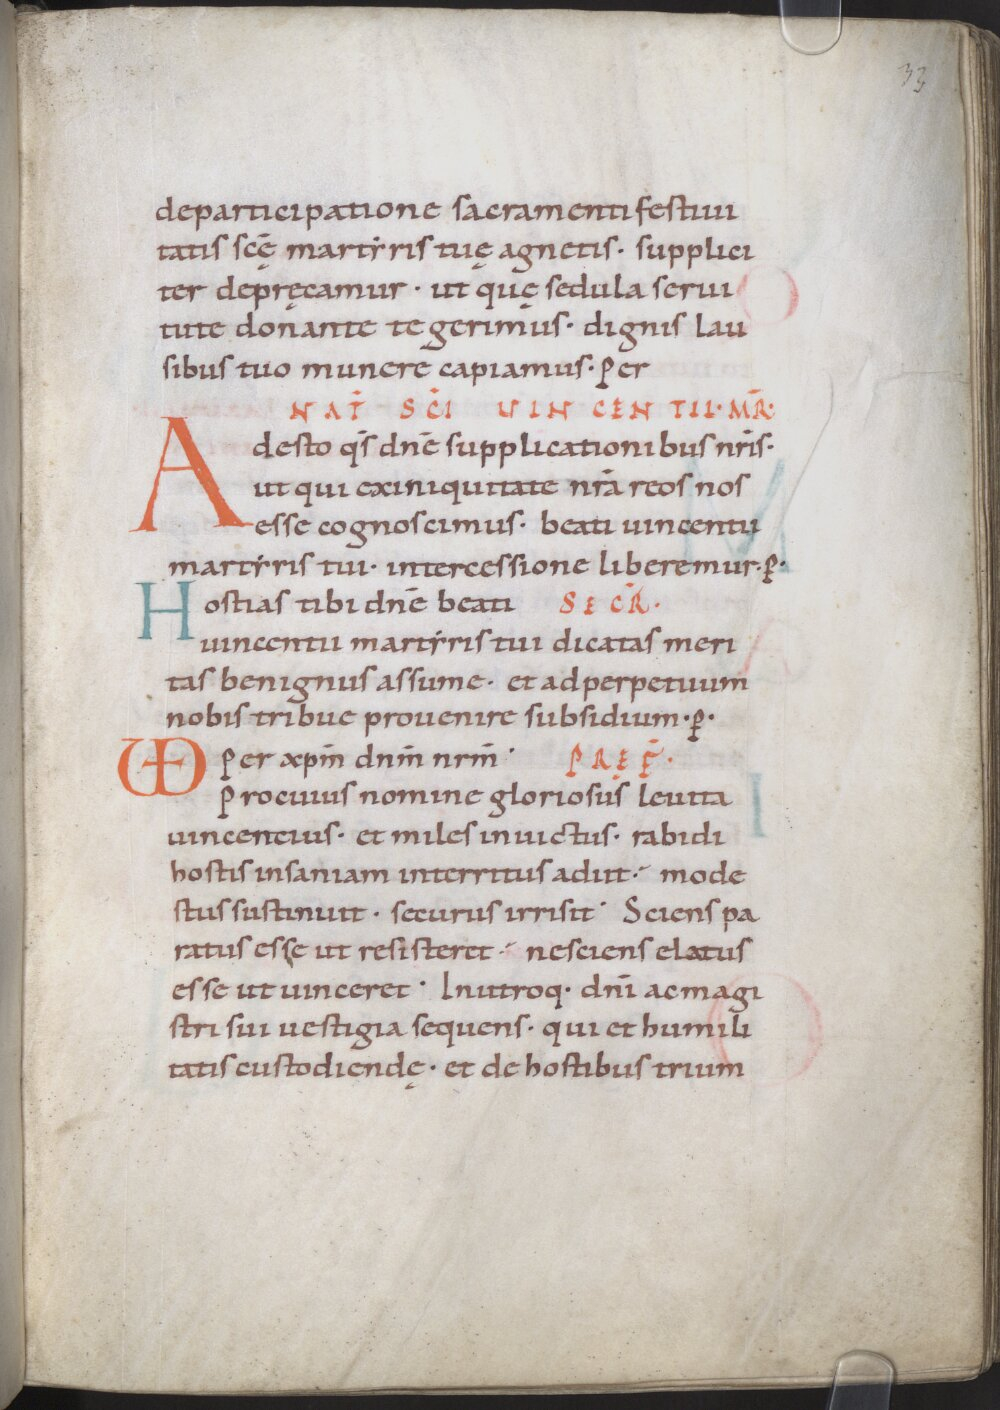 33
departicipatione sacramenti festiui
tatis scę̄ martẏris tuę agnetis· supplici
ter depręcamur · ut quę sedula serui
tute donante te gerimus· dignis lau
sibus tuo munere capiamus· Per
NAT̄ SC̄I UINCENTII· MR̄·
Adesto q̄s dn̄e supplicationibus nr̄is·
ut qui exiniquitate nr̄a reos nos
esse cognoscimus· beati uincentii
martẏris tui· intercessione liberemur· p̄·
Hostias tibi dn̄e beati SECR̄·
uincentii martẏris tui dicatas meri
tas benignus assume· et adperpetuum
nobis tribue prouenire subsidium· p̄·
UD Per xp̄m dn̄m nr̄m· PREF̄·
Procuius nomine gloriosus leuita
uincencius· et miles inuictus· rabidi
hostis insaniam interritus adiit· mode
stus sustinuit · securus irrisit· Sciens pa
ratus esse ut resisteret· nesciens elatus
esse ut uinceret· Inutroq· dn̄i ac magi
stri sui uestigia sequens· qui et humili
tatis custodiendę· et de hostibus trium